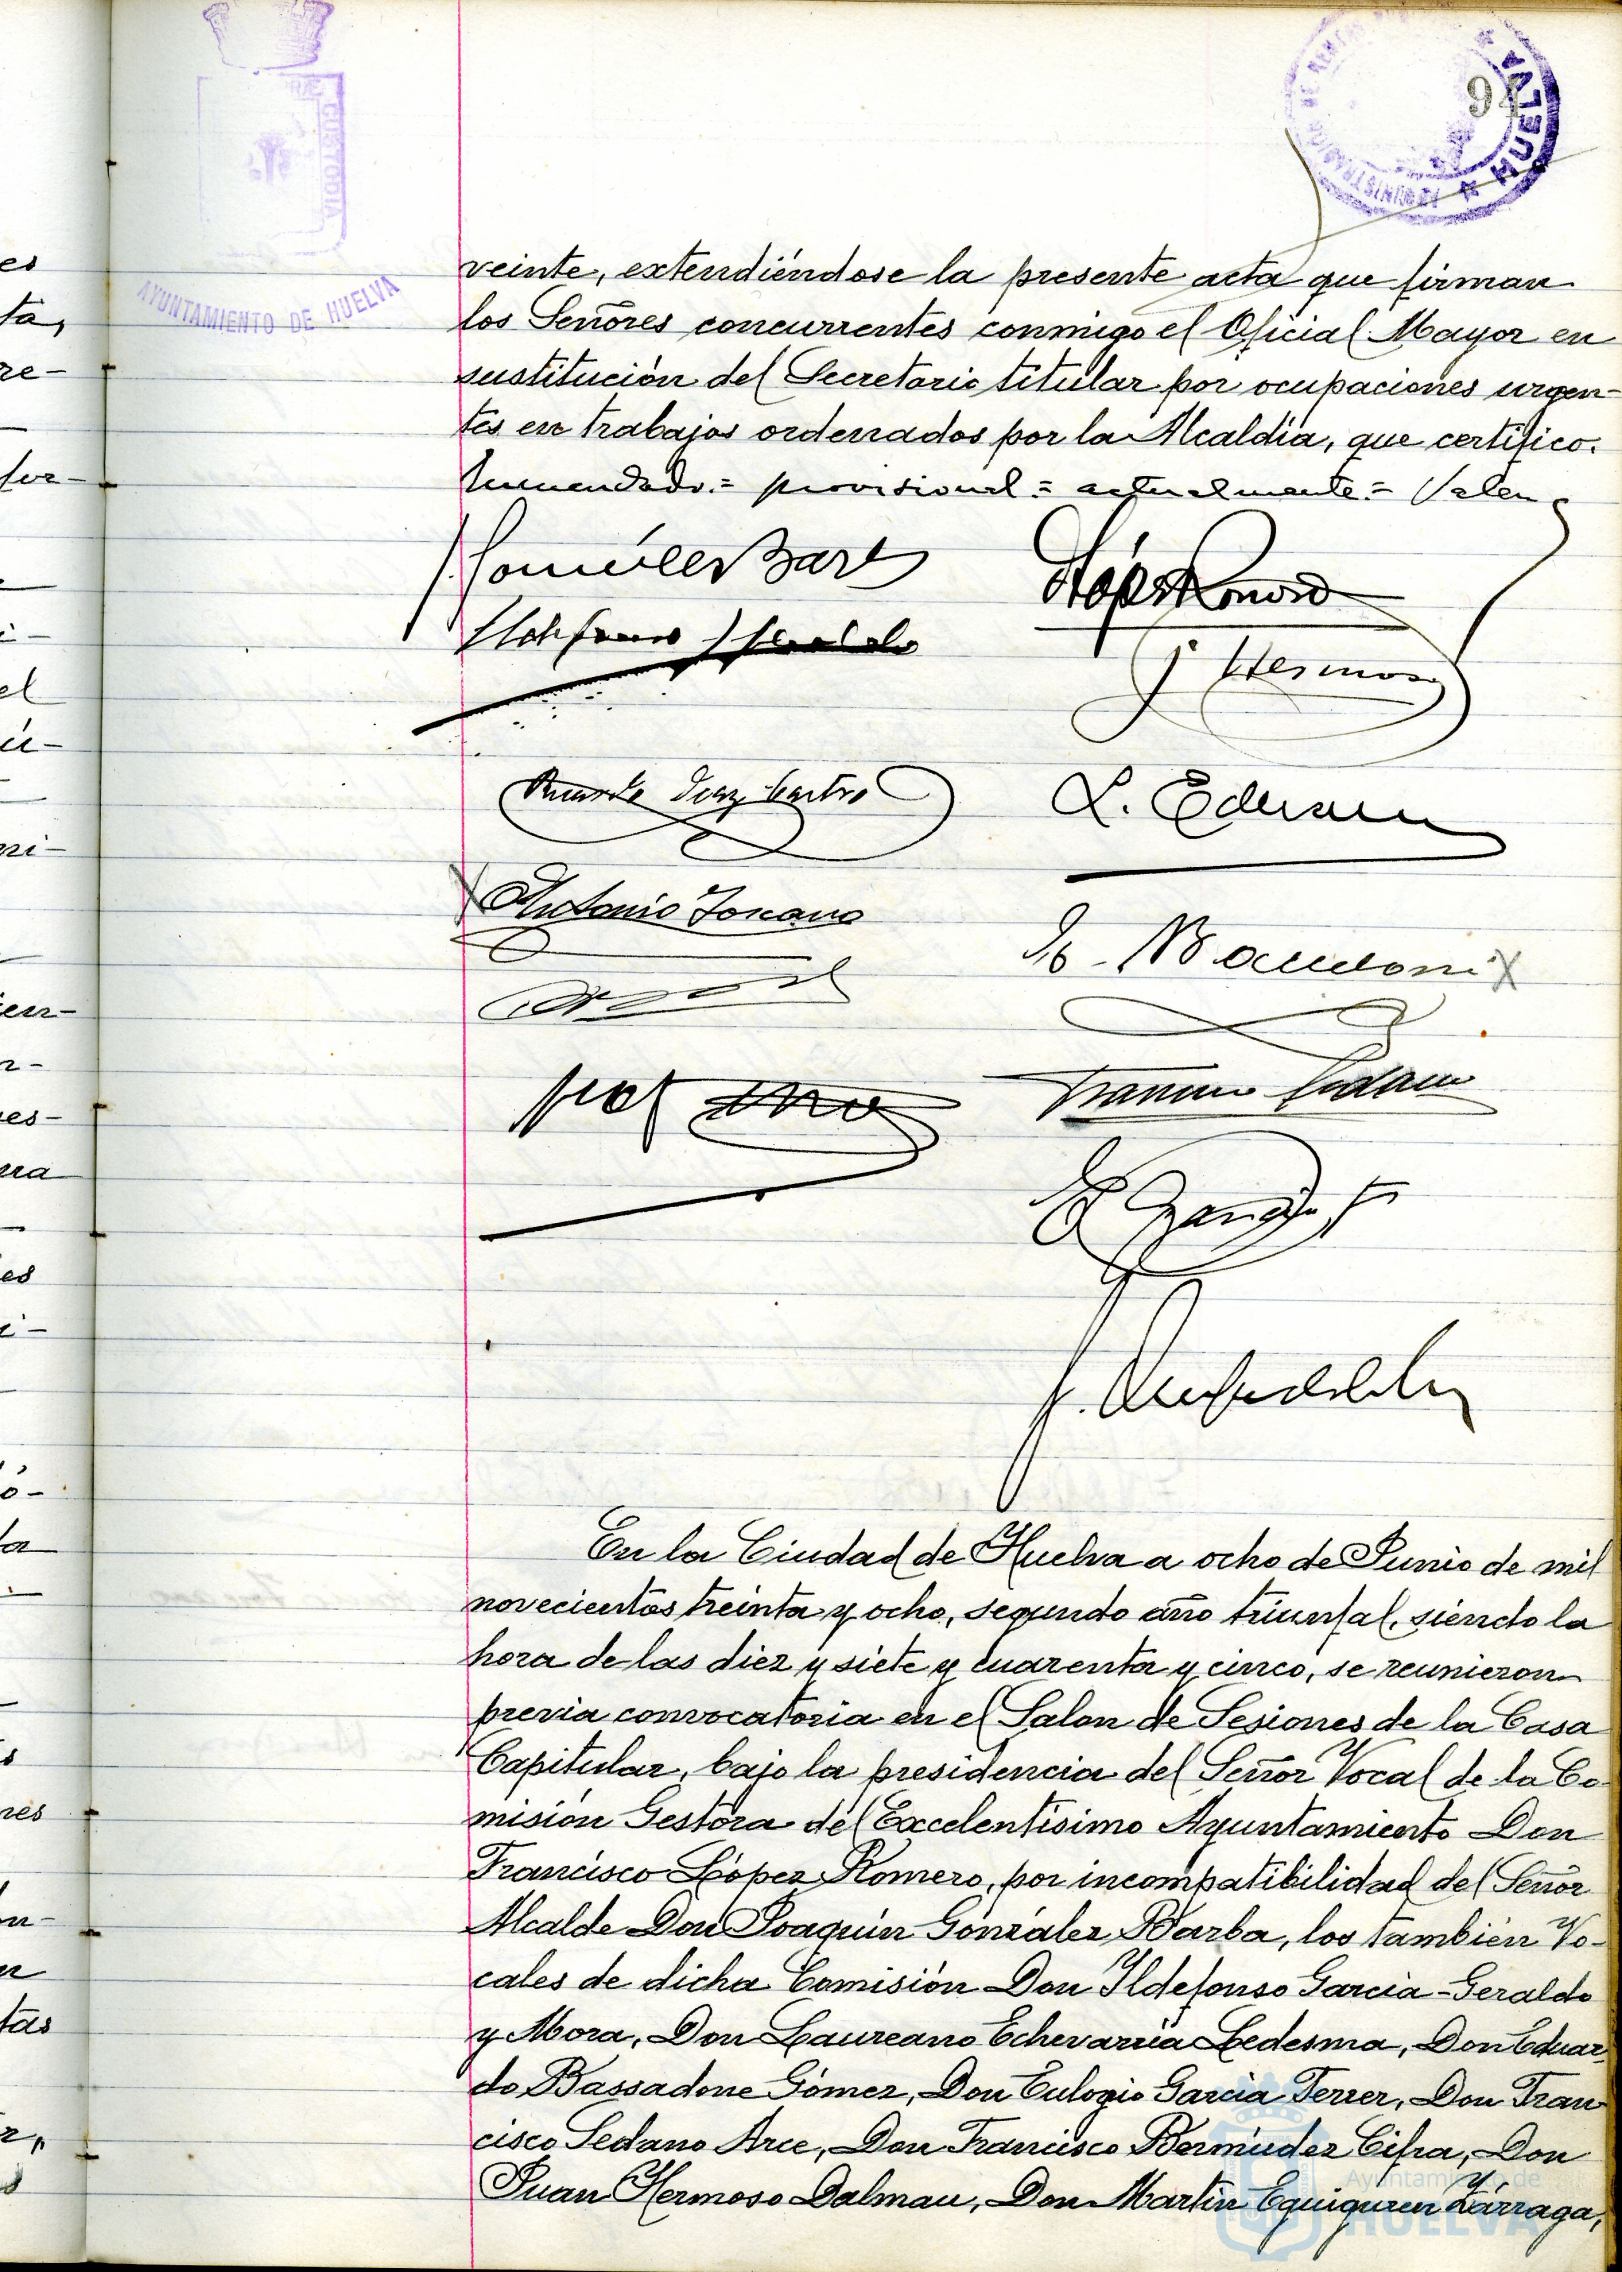 94
HUELVA
CUSTODIA
AYUNTAMIENTO DE HUELVA
veinte, extendiéndose la presente acta que firman
los Señores concurrentes conmigo el Oficial Mayor en
sustitución del Secretario titular por ocupaciones urgen-
tes en trabajos ordenados por la Alcaldia, que certifico.
Enmendado = provisional = actualmente = Valen
González Barba
López Romero
Ildefonso Geraldo
J Hermoso
Ricardo Diaz Castro
L. Echevarria
Antonio Toscano
E. Bassadone
Francisco Sedano
E Garcia F
En la Ciudad de Huelva a ocho de Junio de mil
novecientos treinta y ocho, segundo año triunfal, siendo la
hora de las diez y siete y cuarenta y cinco, se reunieron
previa convocatoria en el Salon de Sesiones de la Casa
Capitular, bajo la presidencia del Señor Vocal de la Co-
misión Gestora del Excelentisimo Ayuntamiento Don
Francisco López Romero, por incompatibilidad del Señor
Alcalde Don Joaquin González Barba, los también Vo-
cales de dicha Comisión Don Ildefonso Garcia-Geraldo
y Mora, Don Laureano Echevarria Ledesma, Don Eduar-
do Bassadone Gómez, Don Eulogio Garcia Ferrer, Don Fran
cisco Sedano Arce, Don Francisco Bermúdez Cifra, Don
Juan Hermoso Dalmau, Don Martin Eguiguren y Lárraga,
Ayuntamiento de
HUELVA